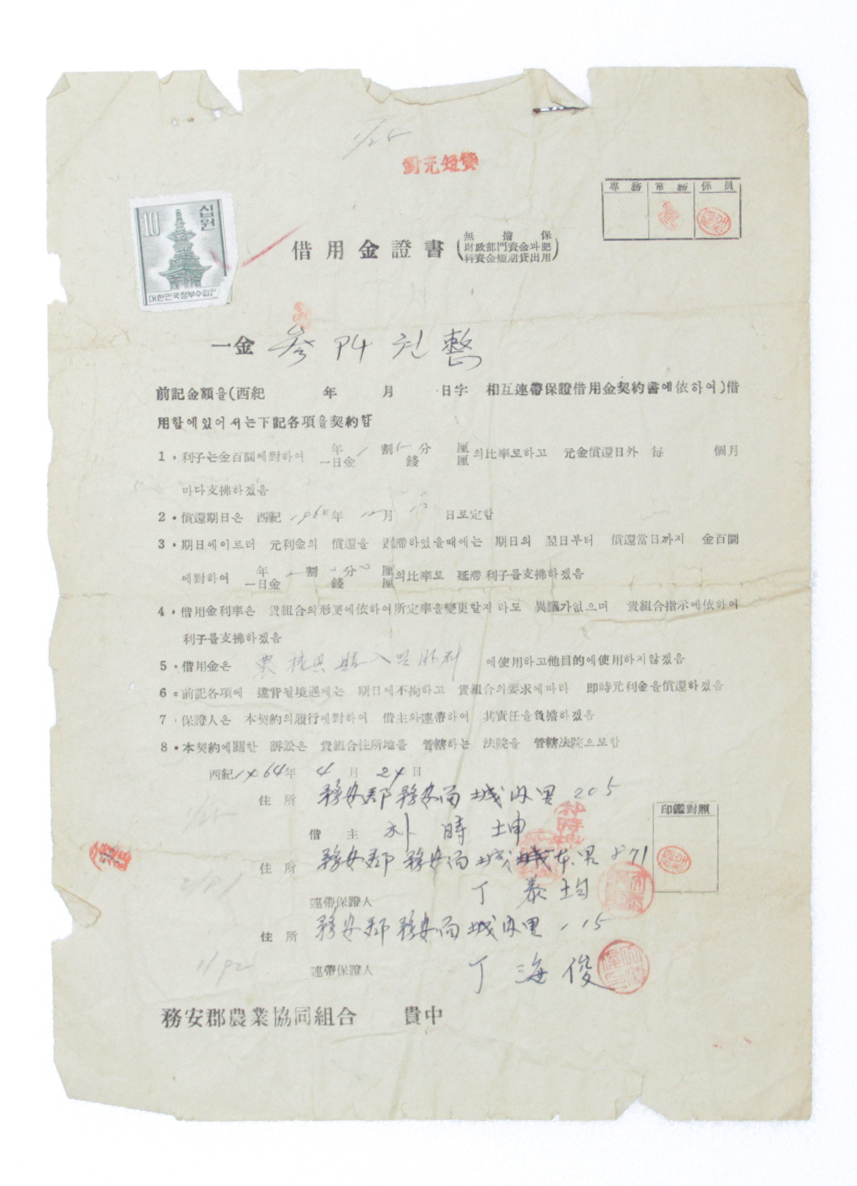 1/25
專務 常務 係員
10 십원
대한민국정부수입인
借用金證書 (無擔保 財政部門資金과肥料資金短期貸出用)
一金 參阡원整
前記金額을(西紀 年 月 日字 相互連帶保證借用金契約書에依하여)借
用함에있어서는下記各項을契約함
1・利子는金百圓에對하여 年 一日金 割 分 錢 厘 厘 의比率로하고 元金償還日外 每 個月
마다支拂하겠음
2・償還期日은 西紀 1964年 月 日로定함
3・期日에이르러 元利金의 償還을 遲滯하있을때에는 期日의 翌日부터 償還當日까지 金百圓
에對하여 年 一日金 割 分 錢 厘 厘 의比率로 延滯利子를支拂하겠음
4・借用金利率은 貴組合의形便에依하여所定率을變更할지라도 異議가없으며 貴組合指示에依하여
利子를支拂하겠음
5・借用金은 農 에使用하고他目的에使用하지않겠음
6・前記各項에 違背될境遇에는 期日에不拘하고 貴組合의要求에따라 即時元利金을償還하겠음
7・保證人은 本契約의履行에對하여 借主와連帶하여 其責任을負擔하겠음
8・本契約에關한 訴訟은 貴組合住所地를 管轄하는 法院을 管轄法院으로함
西紀1964年 4月 24日
住所 務安郡務安面城內里 205
借主 朴時坤
印鑑對照
住所 務安郡務安面城 里 871
連帶保證人 丁泰均
住所 務安郡務安面城內里 115
連帶保證人 丁海俊
務安郡農業協同組合 貴中